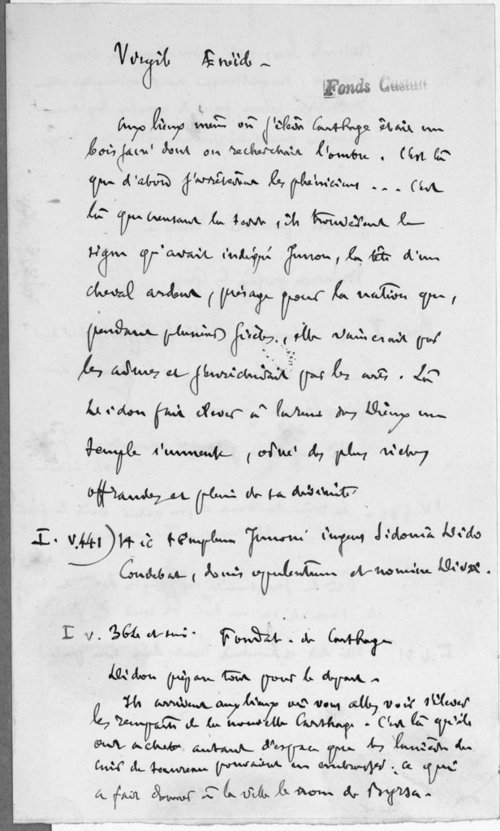 Virgile Enéide -
Fonds
Aux lieux même où s'éleva Carthage était un
bois sacré dont on recherchait l'ombre. C'est là
que d'abord s'arrêtèrent les phéniciens ... C'est
là que creusant la terre, ils trouvèrent le
signe qu'avait indiqué Junon, la tête d'un
cheval ardent, présage pour la nation que,
pendant plusieurs siècles, elle vaincrait par
les armes et s'enrichirait par les arts. Là
Didon fait élever à la reine des Dieux un
temple immense, orné des plus riches
offrandes et plein de sa divinité
I. v.441) Hic templum Junoni ingens Sidonia Dido
Condebat, donis opulentum et numine Divae.
I v. 364 et sui. Fondat. de Carthage
Didon prépare tout pour le départ -
Ils arrivent aux lieux où vous allez voir s'élever
les remparts de la nouvelle Carthage. C'est là qu'ils
ont acheté autant d'espace que les lanières du
cuir de taureau pouvaient en embrasser: ce qui
a fait donner à la ville le nom de Byrsa.